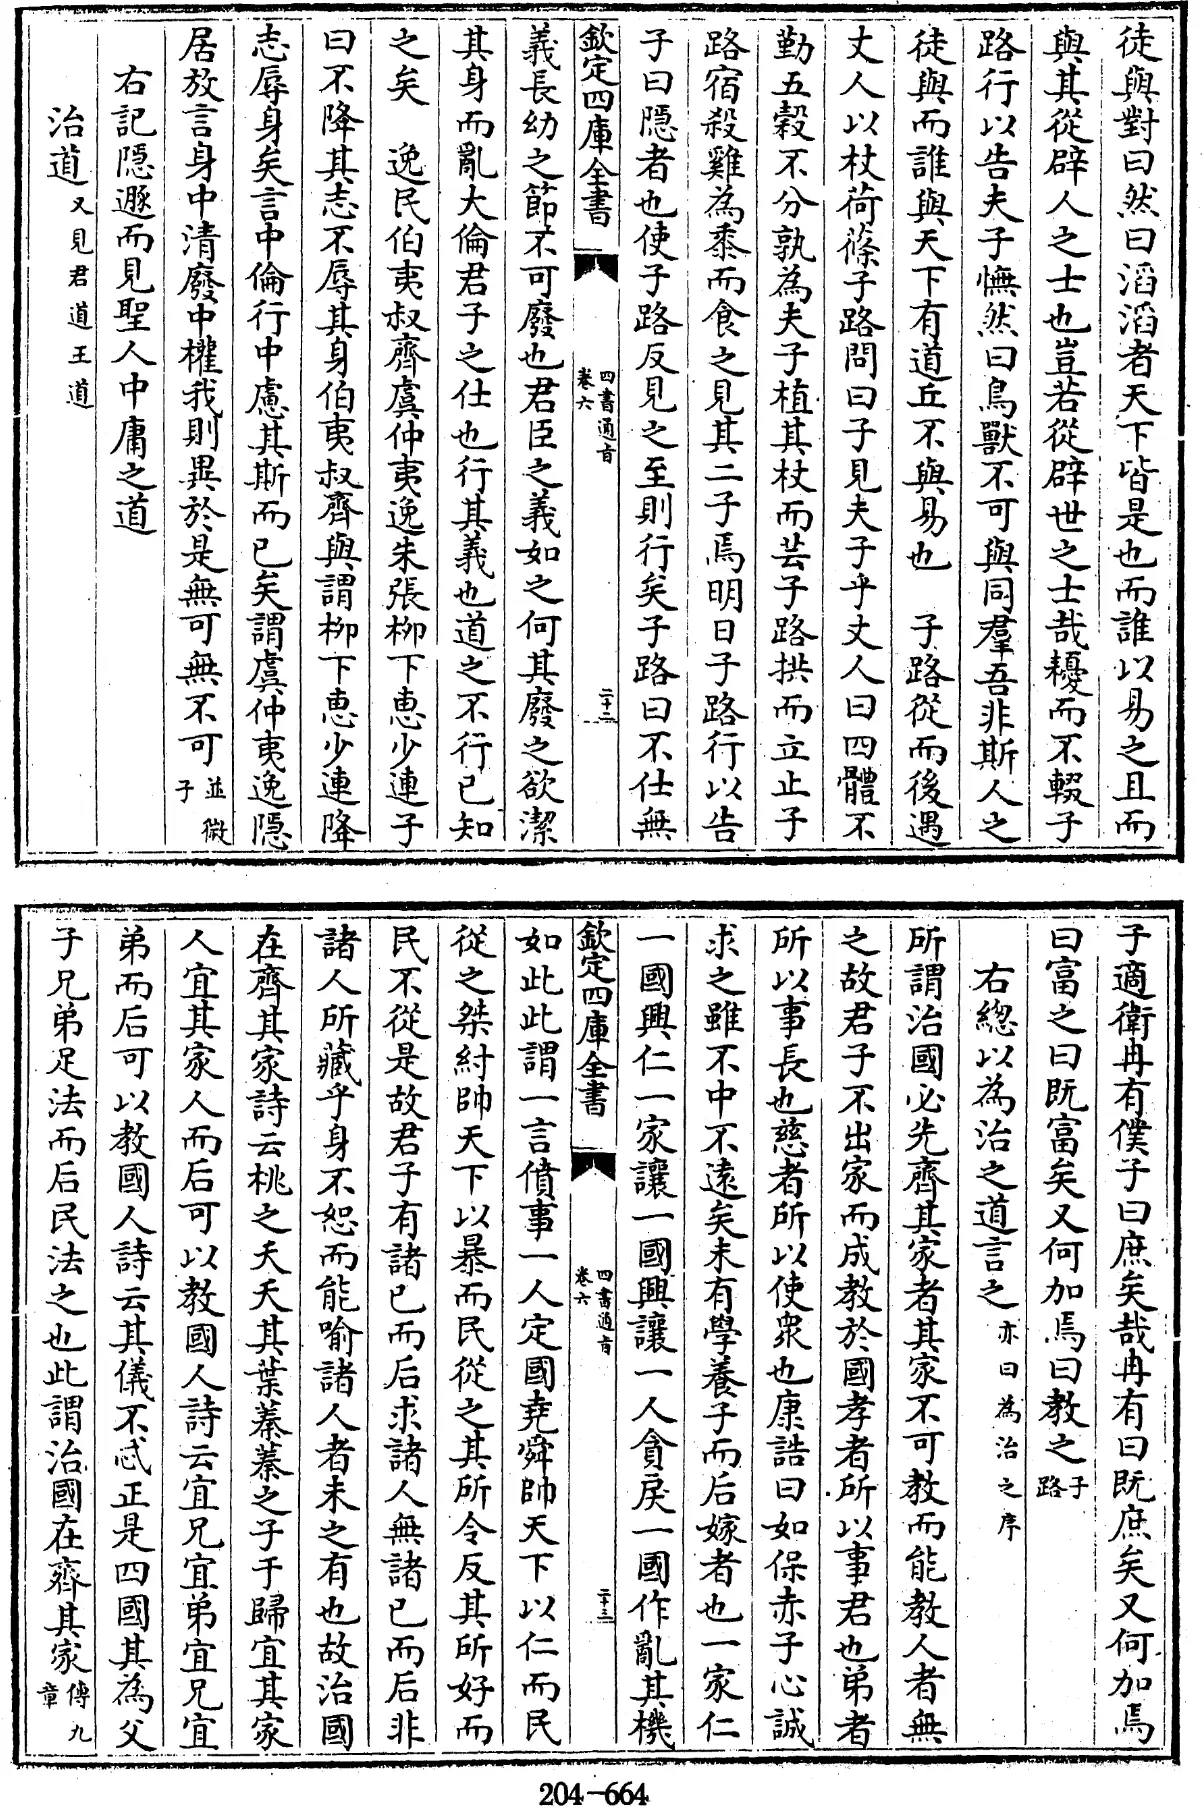 徒與對曰然曰滔滔者天下皆是也而誰以易之且而
與其從辟人之士也豈若從辟世之士哉耰而不輟子
路行以告夫子憮然曰鳥獸不可與同羣吾非斯人之
徒與而誰與天下有道丘不與易也　子路從而後遇
丈人以杖荷蓧子路問曰子見夫子乎丈人曰四體不
勤五穀不分孰為夫子植其杖而芸子路拱而立止子
路宿殺雞為黍而食之見其二子焉明日子路行以告
子曰隱者也使子路反見之至則行矣子路曰不仕無
欽定四庫全書　四書通旨　卷六　二十二
義長幼之節不可廢也君臣之義如之何其廢之欲潔
其身而亂大倫君子之仕也行其義也道之不行已知
之矣　逸民伯夷叔齊虞仲夷逸朱張柳下惠少連子
曰不降其志不辱其身伯夷叔齊與謂柳下惠少連降
志辱身矣言中倫行中慮其斯而已矣謂虞仲夷逸隱
居放言身中清廢中權我則異於是無可無不可並微子
右記隱遯而見聖人中庸之道
治道又見君道王道
子適衛冉有僕子曰庶矣哉冉有曰既庶矣又何加焉
曰富之曰既富矣又何加焉曰教之子路
右總以為治之道言之亦曰為治之序
所謂治國必先齊其家者其家不可教而能教人者無
之故君子不出家而成教於國孝者所以事君也弟者
所以事長也慈者所以使衆也康誥曰如保赤子心誠
求之雖不中不遠矣未有學養子而后嫁者也一家仁
一國興仁一家讓一國興讓一人貪戾一國作亂其機
欽定四庫全書　四書通旨　卷六　二十三
如此此謂一言僨事一人定國堯舜帥天下以仁而民
從之桀紂帥天下以暴而民從之其所令反其所好而
民不從是故君子有諸已而后求諸人無諸已而后非
諸人所藏乎身不恕而能喻諸人者未之有也故治國
在齊其家詩云桃之夭夭其葉蓁蓁之子于歸宜其家
人宜其家人而后可以教國人詩云宜兄宜弟宜兄宜
弟而后可以教國人詩云其儀不忒正是四國其為父
子兄弟足法而后民法之也此謂治國在齊其家傳九章
204-664